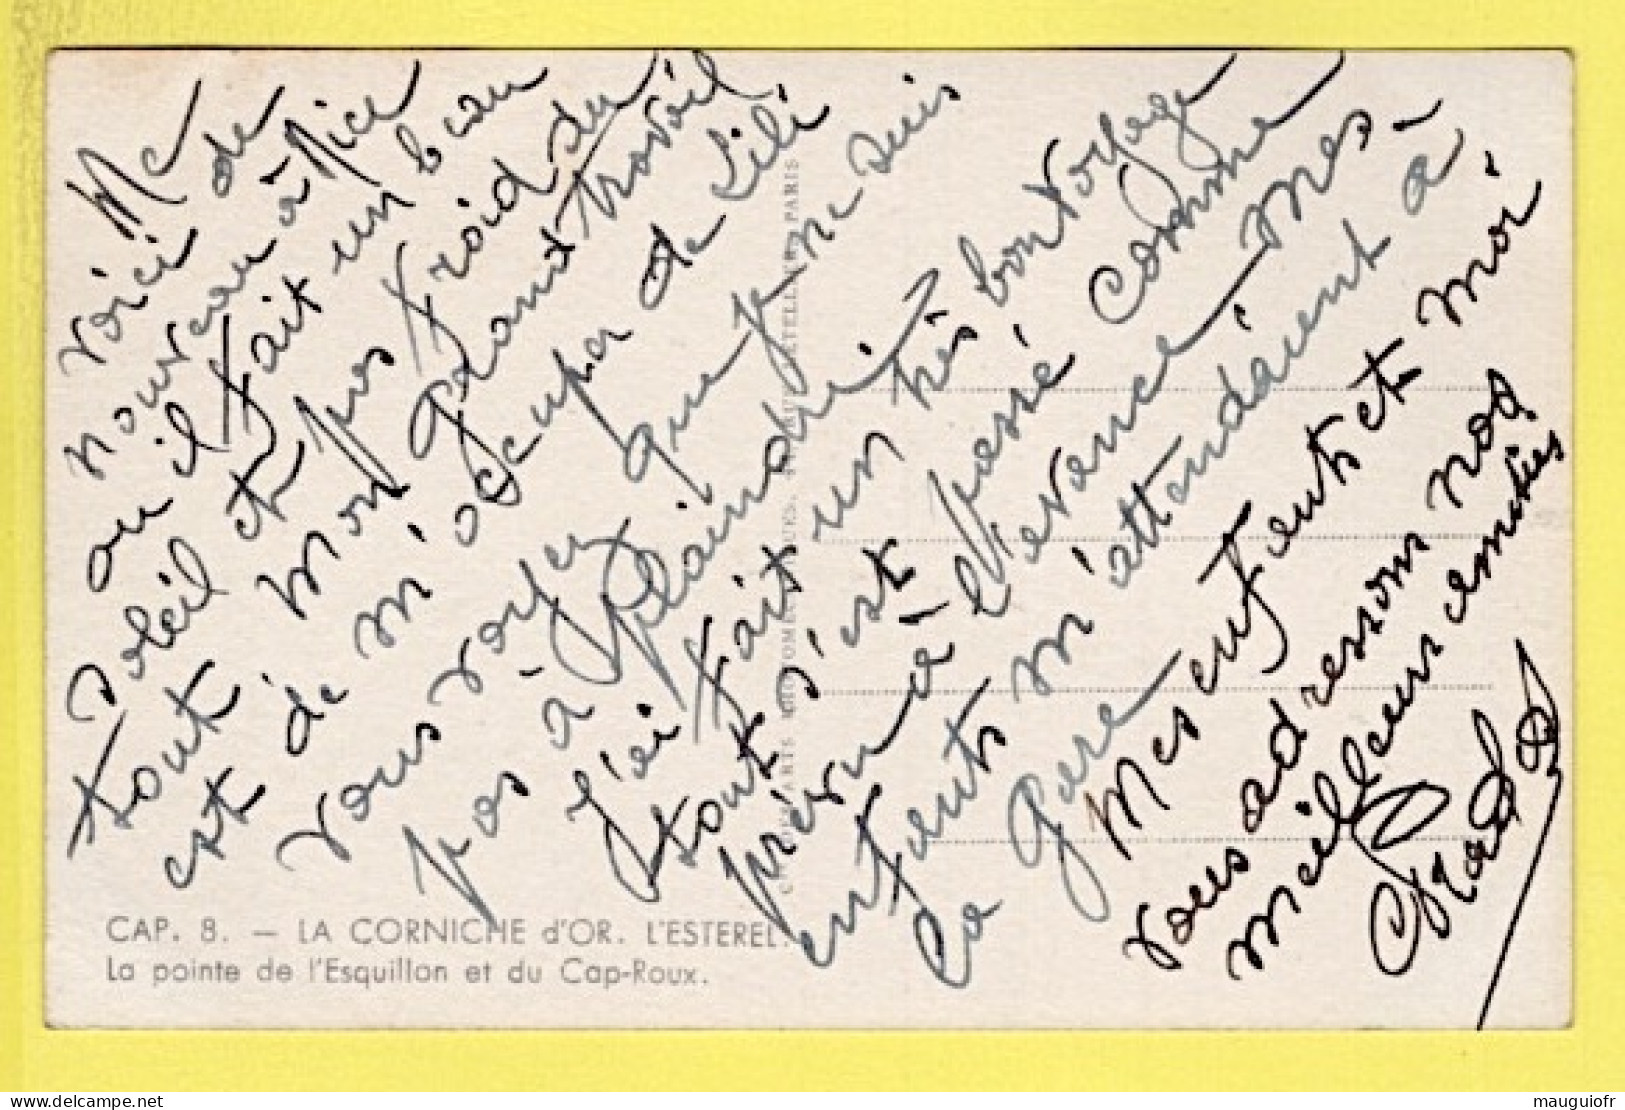 Me
Voici de
nouveau à Nice
ou il fait un beau
soleil et pas froid du
tout Mon grand travail
est de m'occuper de Lili
Vous voyez que je ne suis
pas à plaindre
J'ai fait un très bon voyage
tout s'est passé comme
prévu à l'evance mes
enfants m'attendaient à
la gare
Mes enfants et moi
vous adressons nos
meilleurs amitiés
CAP. 8. — LA CORNICHE d'OR. L'ESTEREL.
La pointe de l'Esquillon et du Cap-Roux.
PARIS
mauguiofr